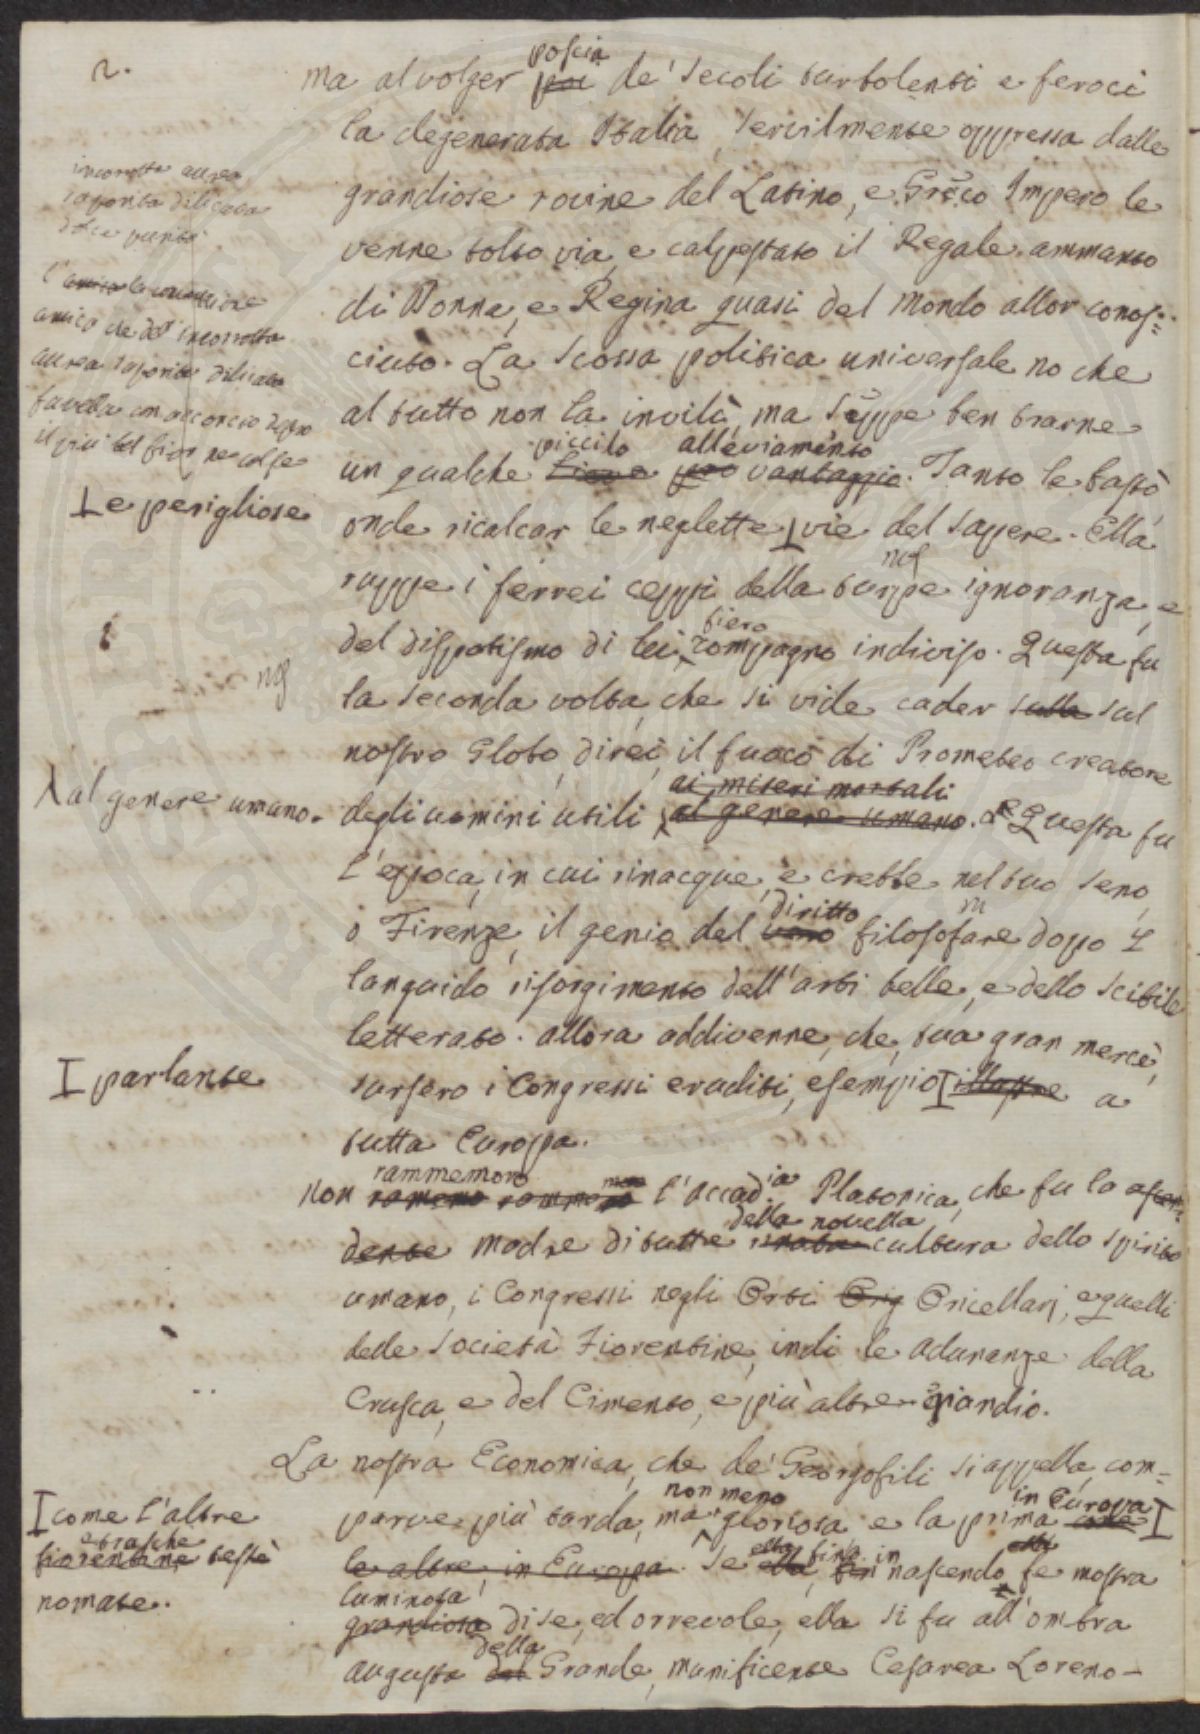 2.
ma al volger poscia poi de' secoli turbolenti e feroci
la degenerata Italia, servilmente oppressa dalle
grandiose rovine del Latino, e Greco Impero le
venne tolto via, e calpestato il Regale ammanto
di Donna, e Regina quasi del mondo allor conos=
ciuto. La scossa politica universale no che
al tutto non la invilì, ma seppe ben trarne
piccilo alleviamento
un qualche vantaggio. Tanto le bastò,
onde ricalcar le neglette vie del sapere. Ella
ruppe i ferrei ceppi della turpe ignoranza, e
fiero
del dispotismo di lei, compagno indiviso. Questa fu
la seconda volta, che si vide cader sulla sul
nostro Globo, direi, il fuoco di Prometeo creatore
ai miseri mortali
degli uomini utili al genere umano. Questa fu
l'epoca, in cui rinacque, e crebbe nel tuo seno,
diritto
o Firenze, il genio del vero filosofare dopo il
languido risorgimento dell'arti belle, e dello scibile
letterato. allora addivenne, che, tua gran mercè,
sursero i Congressi eruditi, esempio illustre a
tutta Europa.
rammemoro
non l'accad.ia Platonica, che fu la ascen=
della novella
dente madre di tutta cultura dello spirito
umano, i Congressi negli Orti Orig Oricellarj, e quelli
delle Società Fiorentine, indi le adunanze della
Crusca, e del Cimento, e più altre eziandio.
La nostra Economica, che de' Georgofili si appella, com=
non meno in Europa
parve più tarda, ma gloriosa e la prima
ella fino in
le altre in Europa. Se ella, nascendo fe mostra
luminosa
grandiosa di se, ed orrevole, ella si fu all'ombra
della
augusta del Grande, munificente Cesarea Loreno-
incorrotta aurea
saporita dilicata
l'amico
amico de del incorrotta
aurea saporita dilicata
favella
il più bel fior ne colse
I e perigliose
al genere umano.
I parlante
I come l'altre
etrusche
fiorentine testè
nomate.